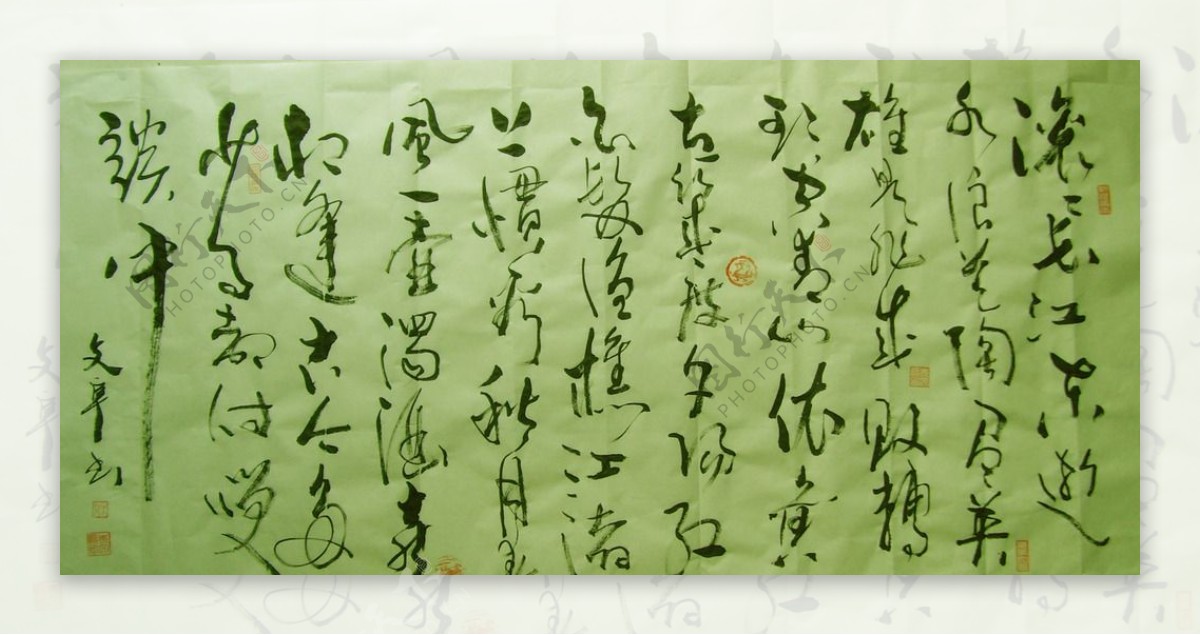 滚滚长江东逝
水浪花淘尽英
雄是非成败轉
头空青山依旧
在幾度夕陽红
白髮渔樵江渚
上惯看秋月春
風一壺濁酒喜
相逢古今多
少事都付笑
談中
文 书
图行天下
PHOTOPHOTO.CN